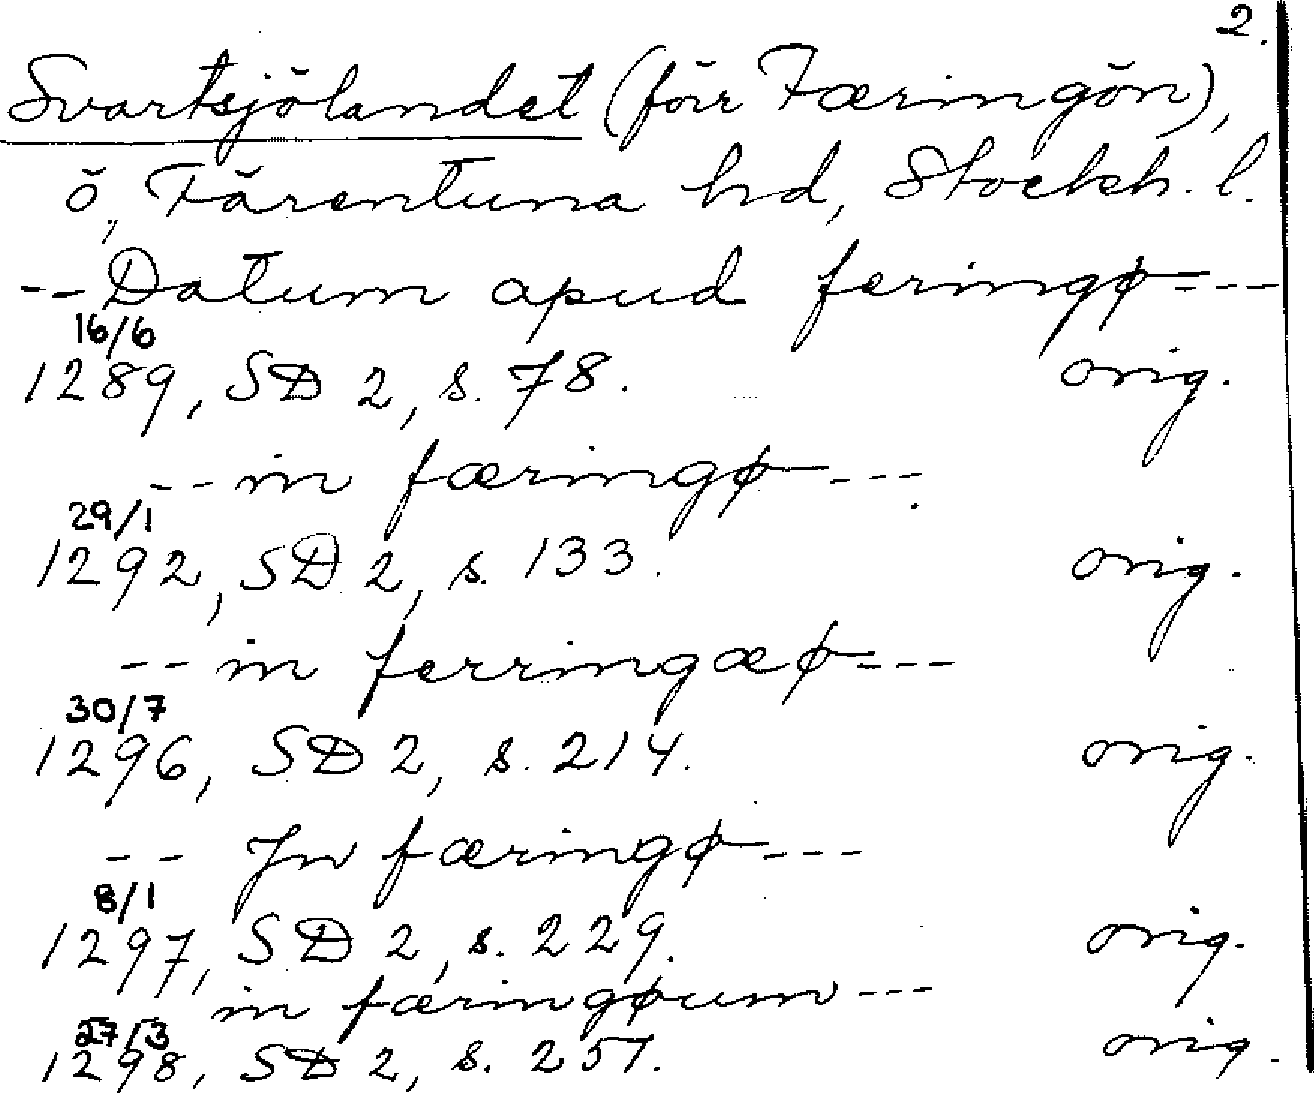 2.
Svartsjölandet (förr Færingön),
ö, Färentuna hd, Stockh. l.
-- Datum apud feringø ---
16/6
1289, SD 2, s. 78. orig.
-- in færingø ---
29/1
1292, SD 2, s. 133. orig.
-- in ferringæø ---
30/7
1296, SD 2, s. 214. orig.
-- Jn færingø ---
8/1
1297, SD 2, s. 229. orig.
-- in færingøum ---
27/3
1298, SD 2, s. 251. orig.